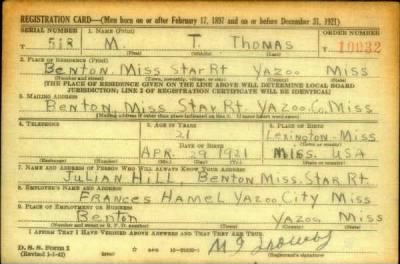 REGISTRATION CARD—(Men born on or after February 17, 1897 and on or before December 31, 1921)
SERIAL NUMBER 1. NAME (Print) ORDER NUMBER
518 M. T Thomas 10032
(First) (Middle) (Last)
2. PLACE OF RESIDENCE (Print)
Benton, Miss Star Rt Yazoo Miss
(Number and street) (Town, township, village, or city) (County) (State)
[THE PLACE OF RESIDENCE GIVEN ON THE LINE ABOVE WILL DETERMINE LOCAL BOARD
JURISDICTION; LINE 2 OF REGISTRATION CERTIFICATE WILL BE IDENTICAL]
3. MAILING ADDRESS
Benton, Miss Star Rt. Yazoo Co, Miss
[Mailing address if other than place indicated on line 2. If same insert word same]
4. TELEPHONE 5. AGE IN YEARS 6. PLACE OF BIRTH
21 Lexington - Miss
DATE OF BIRTH (Town or county)
APR. 29 1921 Miss. USA
(Exchange) (Number) (Mo.) (Day) (Yr.) (State or country)
7. NAME AND ADDRESS OF PERSON WHO WILL ALWAYS KNOW YOUR ADDRESS
Julian Hill Benton Miss. Star Rt.
8. EMPLOYER'S NAME AND ADDRESS
Frances Hamel Yazoo City Miss
9. PLACE OF EMPLOYMENT OR BUSINESS
Benton Yazoo Miss
(Number and street or R. F. D. number) (Town) (County) (State)
I AFFIRM THAT I HAVE VERIFIED ABOVE ANSWERS AND THAT THEY ARE TRUE.
D. S. S. Form 1
(Revised 1-1-42) (over)
(Registrant's signature)